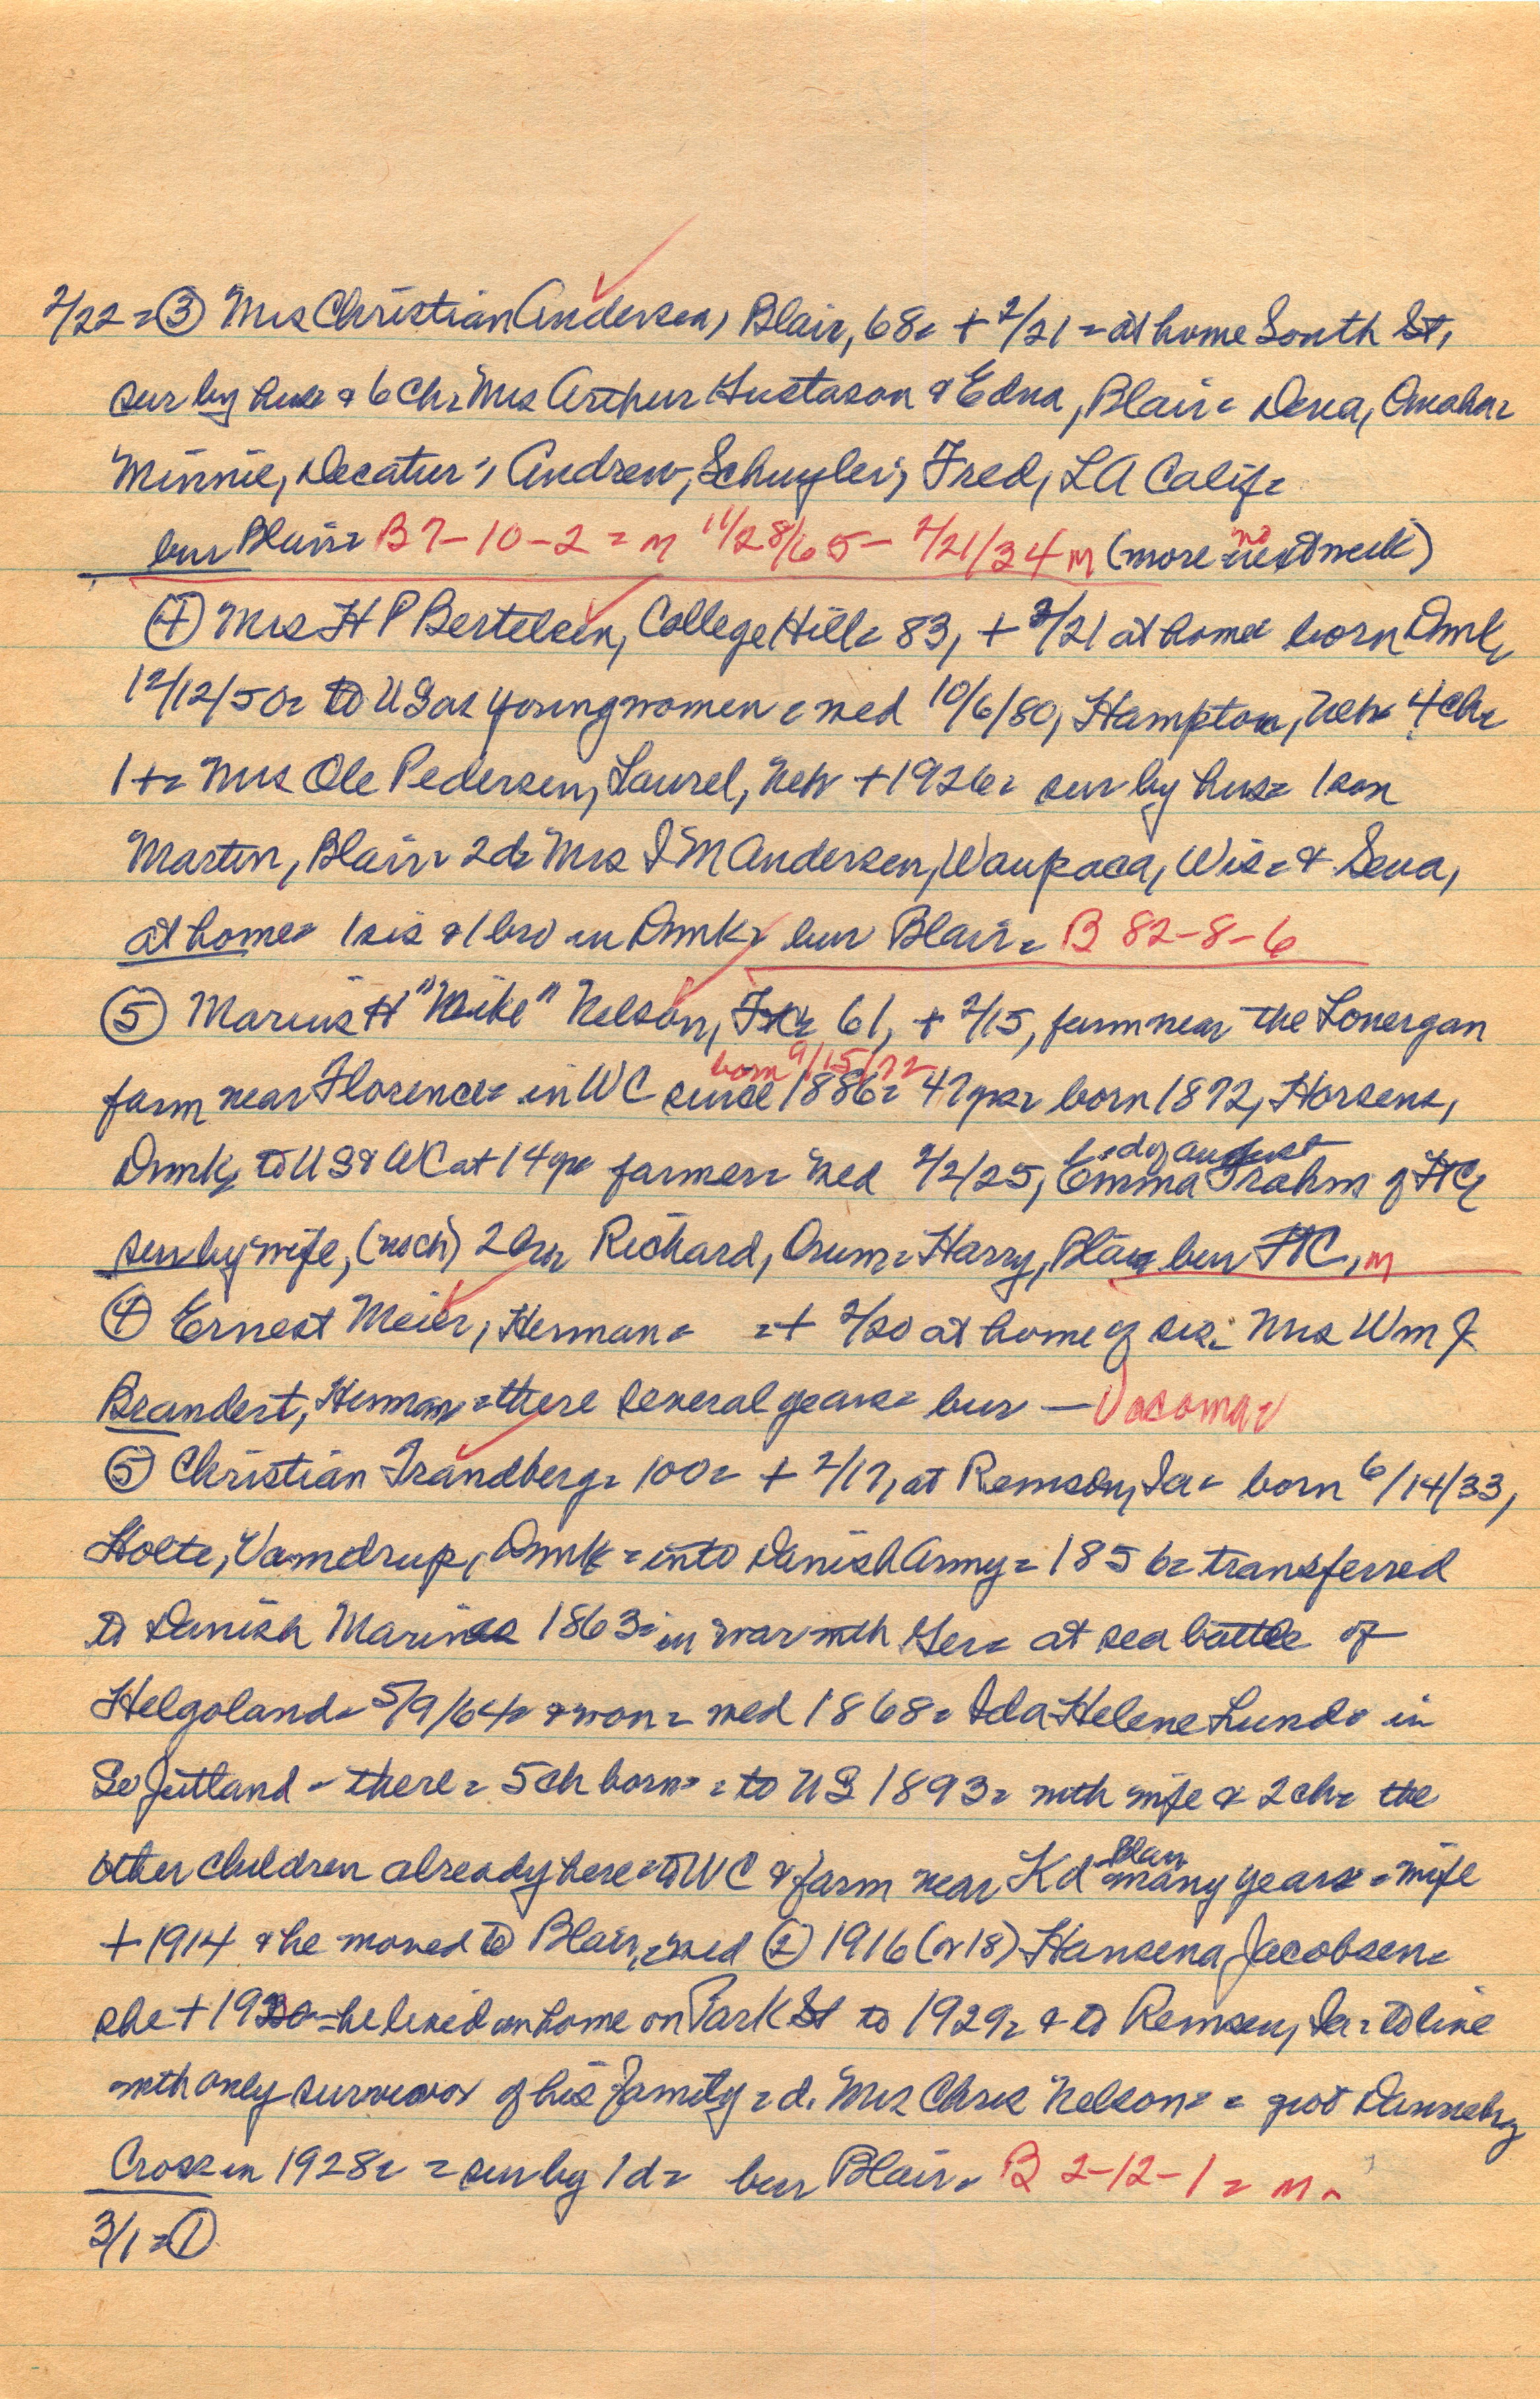 2/22 = ③ Mrs Christian Andersen, Blair, 68= + 2/21 = at home South St,
sur by hus & 6 ch= Mrs Arthur Gustason & Edna, Blair= Dena, Omaha=
Minnie, Decatur; Andrew, Schuyler; Fred, LA Calif=
bur Blair= B7-10-2 = m 11/28/65 - 2/21/34 m (more next week)
no
④ Mrs H P Bertelsen, College Hill= 83, + 2/21 at home born Dmk,
12/12/50= to US as young women = wed 10/6/80, Hampton, Neb= 4 ch=
1 += Mrs Ole Pedersen, Laurel, Neb + 1926= sur by hus= 1 son
Martin, Blair= 2 d= Mrs I M Andersen, Waupaca, Wis= & Sena,
at home= 1 sis & 1 bro in Dmk= bur Blair= B 82-8-6
⑤ Marius H "Mike" Nelson, 61, + 2/15, farm near the Lonergan
born 9/15/72
farm near Florence= in WC since 1886= 47 yrs= born 1872, Horsens,
d of August
Dmk, to US & WC at 14 yrs farmer= wed 2/2/25, Emma Frahm of FtC,
sur by wife, (no ch) 2 bro= Richard, Orum= Harry, Blair bur FtC, m
④ Ernest Meier, Herman= =+ 2/20 at home of sis= Mrs Wm J
Brandert, Herman= there several years= bur - Vacoma=
⑤ Christian Trandberg= 100= + 2/17, at Remsen, Ia= born 6/14/33,
Holte, Vamdrup, Dmk= into Danish Army= 1856= transferred
to Danish Marines 1863= in war with Ger= at sea battle of
Helgoland= 5/9/64= & won= wed 1868= Ida Helene Lund= in
So Jutland - there= 5 ch born= = to US 1893= with wife & 2 ch= the
Blair
other children already here= to WC & farm near Kd many years= wife
+ 1914 & he moved to Blair, = wed ② 1916 (or 18) Hansena Jacobsen=
she + = he lived in home on Park St to 1929= & to Remsen, Ia= to live
with only survivor of his family= d. Mrs Chris Nelson= = got Dannebrog
Cross in 1928= = sur by 1 d= bur Blair= B 2-12-1= m=
3/1 = ①